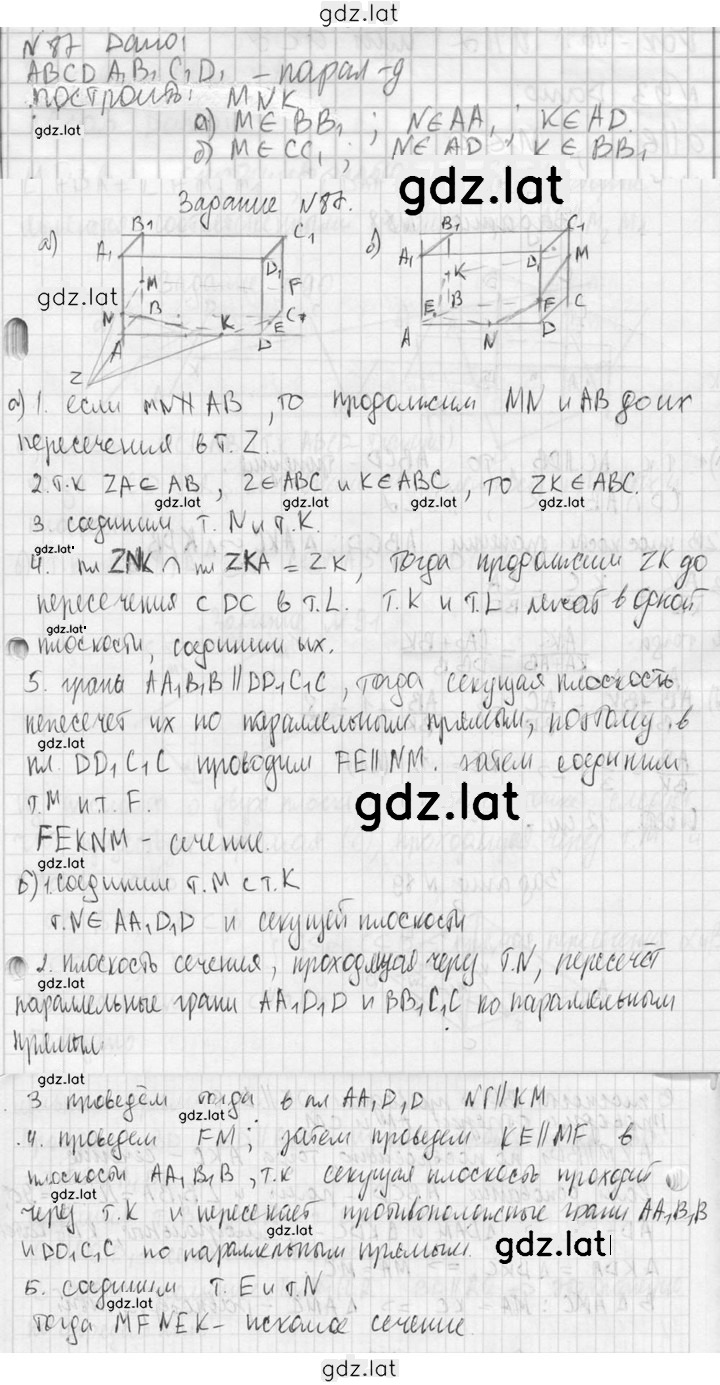 gdz.lat
N 87 Дано:
ABCD A₁B₁C₁D₁ - парал-д
построить: MNK
а) M∈BB₁; N∈AA₁ K∈AD.
gdz.lat
б) M∈CC₁; N∈AD; K∈BB₁
gdz.lat
Задание N87.
а) B₁ C₁ A₁ D₁ M F N B C K E A D Z
б) B₁ C₁ A₁ D₁ M K F E B C A N D
gdz.lat
а) 1. если MN∦AB, то продолжим MN и AB до их
пересечения в т. Z.
2. т.к ZA⊂AB, Z∈ABC и K∈ABC, то ZK∈ABC.
gdz.lat gdz.lat gdz.lat gdz.lat
3 соединим т. N и т. K.
gdz.lat
4. пл ZNK ∩ пл ZKA = ZK, тогда продолжим ZK до
пересечения с DC в т. L. т. K и т. L лежат в одной
gdz.lat
плоскости, соединим их.
5. грани AA₁B₁B∥DD₁C₁C, тогда секущая плоскость
пепесечет их по параллельным прямым, поэтому в
gdz.lat
пл. DD₁C₁C проводим FE∥NM. затем соединим
т. M и т. F.
gdz.lat
FEKNM - сечение.
gdz.lat
б) 1. соединим т. M с т. K
т. N∈AA₁D₁D и секущей плоскости
gdz.lat
2. плоскость сечения, проходящая через т. N, пересечёт
параллельные грани AA₁D₁D и BB₁C₁C по параллельным
прямым
gdz.lat
3 проведём тогда в пл AA₁D₁D NF∥KM
gdz.lat
4. проведем FM; затем проведем KE∥MF в
плоскости AA₁B₁B, т.к секущая плоскость проходит
gdz.lat
через т. K и пересекает противоположные грани AA₁B₁B
и DD₁C₁C по параллельным прямым.
gdz.lat
5. соединим т. E и т. N
gdz.lat
тогда MFNEK - искомое сечение.
gdz.lat